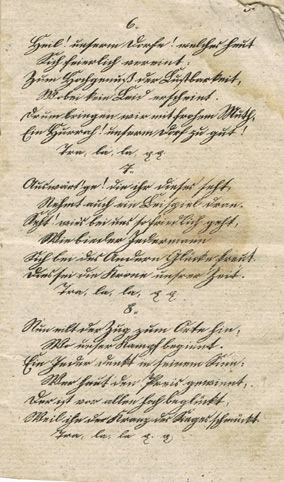 6.
Heil! unserm Dorfe! welches heut
Sich feierlich vereint:
Zum Hochgenuß der Lustbarkeit,
Wobei kein Leid erscheint.
Drum bringen wir mit frohem Muth,
Ein Hurrah! unserm Dorf zu gut!
Tra, la, la, pp
7.
Auswärt'ge! die ihr dieses seht,
Nehmt auch ein Beispiel dran.
Seht wie's bei uns so friedlich geht,
Wie bieder Jedermann
Sich bei des Andern Glücke freut.
Dies sei die Krone unsrer Zeit.
Tra, la, la, pp
8.
Nun eilt der Zug zum Orte hin,
Wo unser Kampf beginnt.
Ein Jeder denkt in seinem Sinn:
Wer heut den Preis gewinnt,
Der ist vor allen hoch beglückt,
Weil ihn der Kranz des Sieges schmückt.
Tra, la, la p. p.